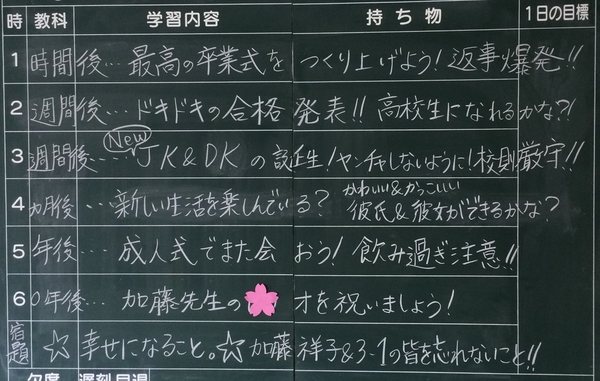 時 教科 学習内容 持ち物 1日の目標
1 時間後… 最高の卒業式をつくり上げよう! 返事爆発!!
2 週間後… ドキドキの合格発表!! 高校生になれるかな?!
New
3 週間後…… JK&DKの誕生! ヤンチャしないように! 校則厳守!!
かわいい&かっこいい
4 カ月後 …新しい生活を楽しんでいる? 彼氏&彼女ができるかな?
5 年後… 成人式でまた会おう! 飲み過ぎ注意!!
6 0年後… 加藤先生の 才を祝いましょう!
宿題 ☆ 幸せになること。☆加藤祥子&3-1の皆を忘れないこと!!
欠席 遅刻早退